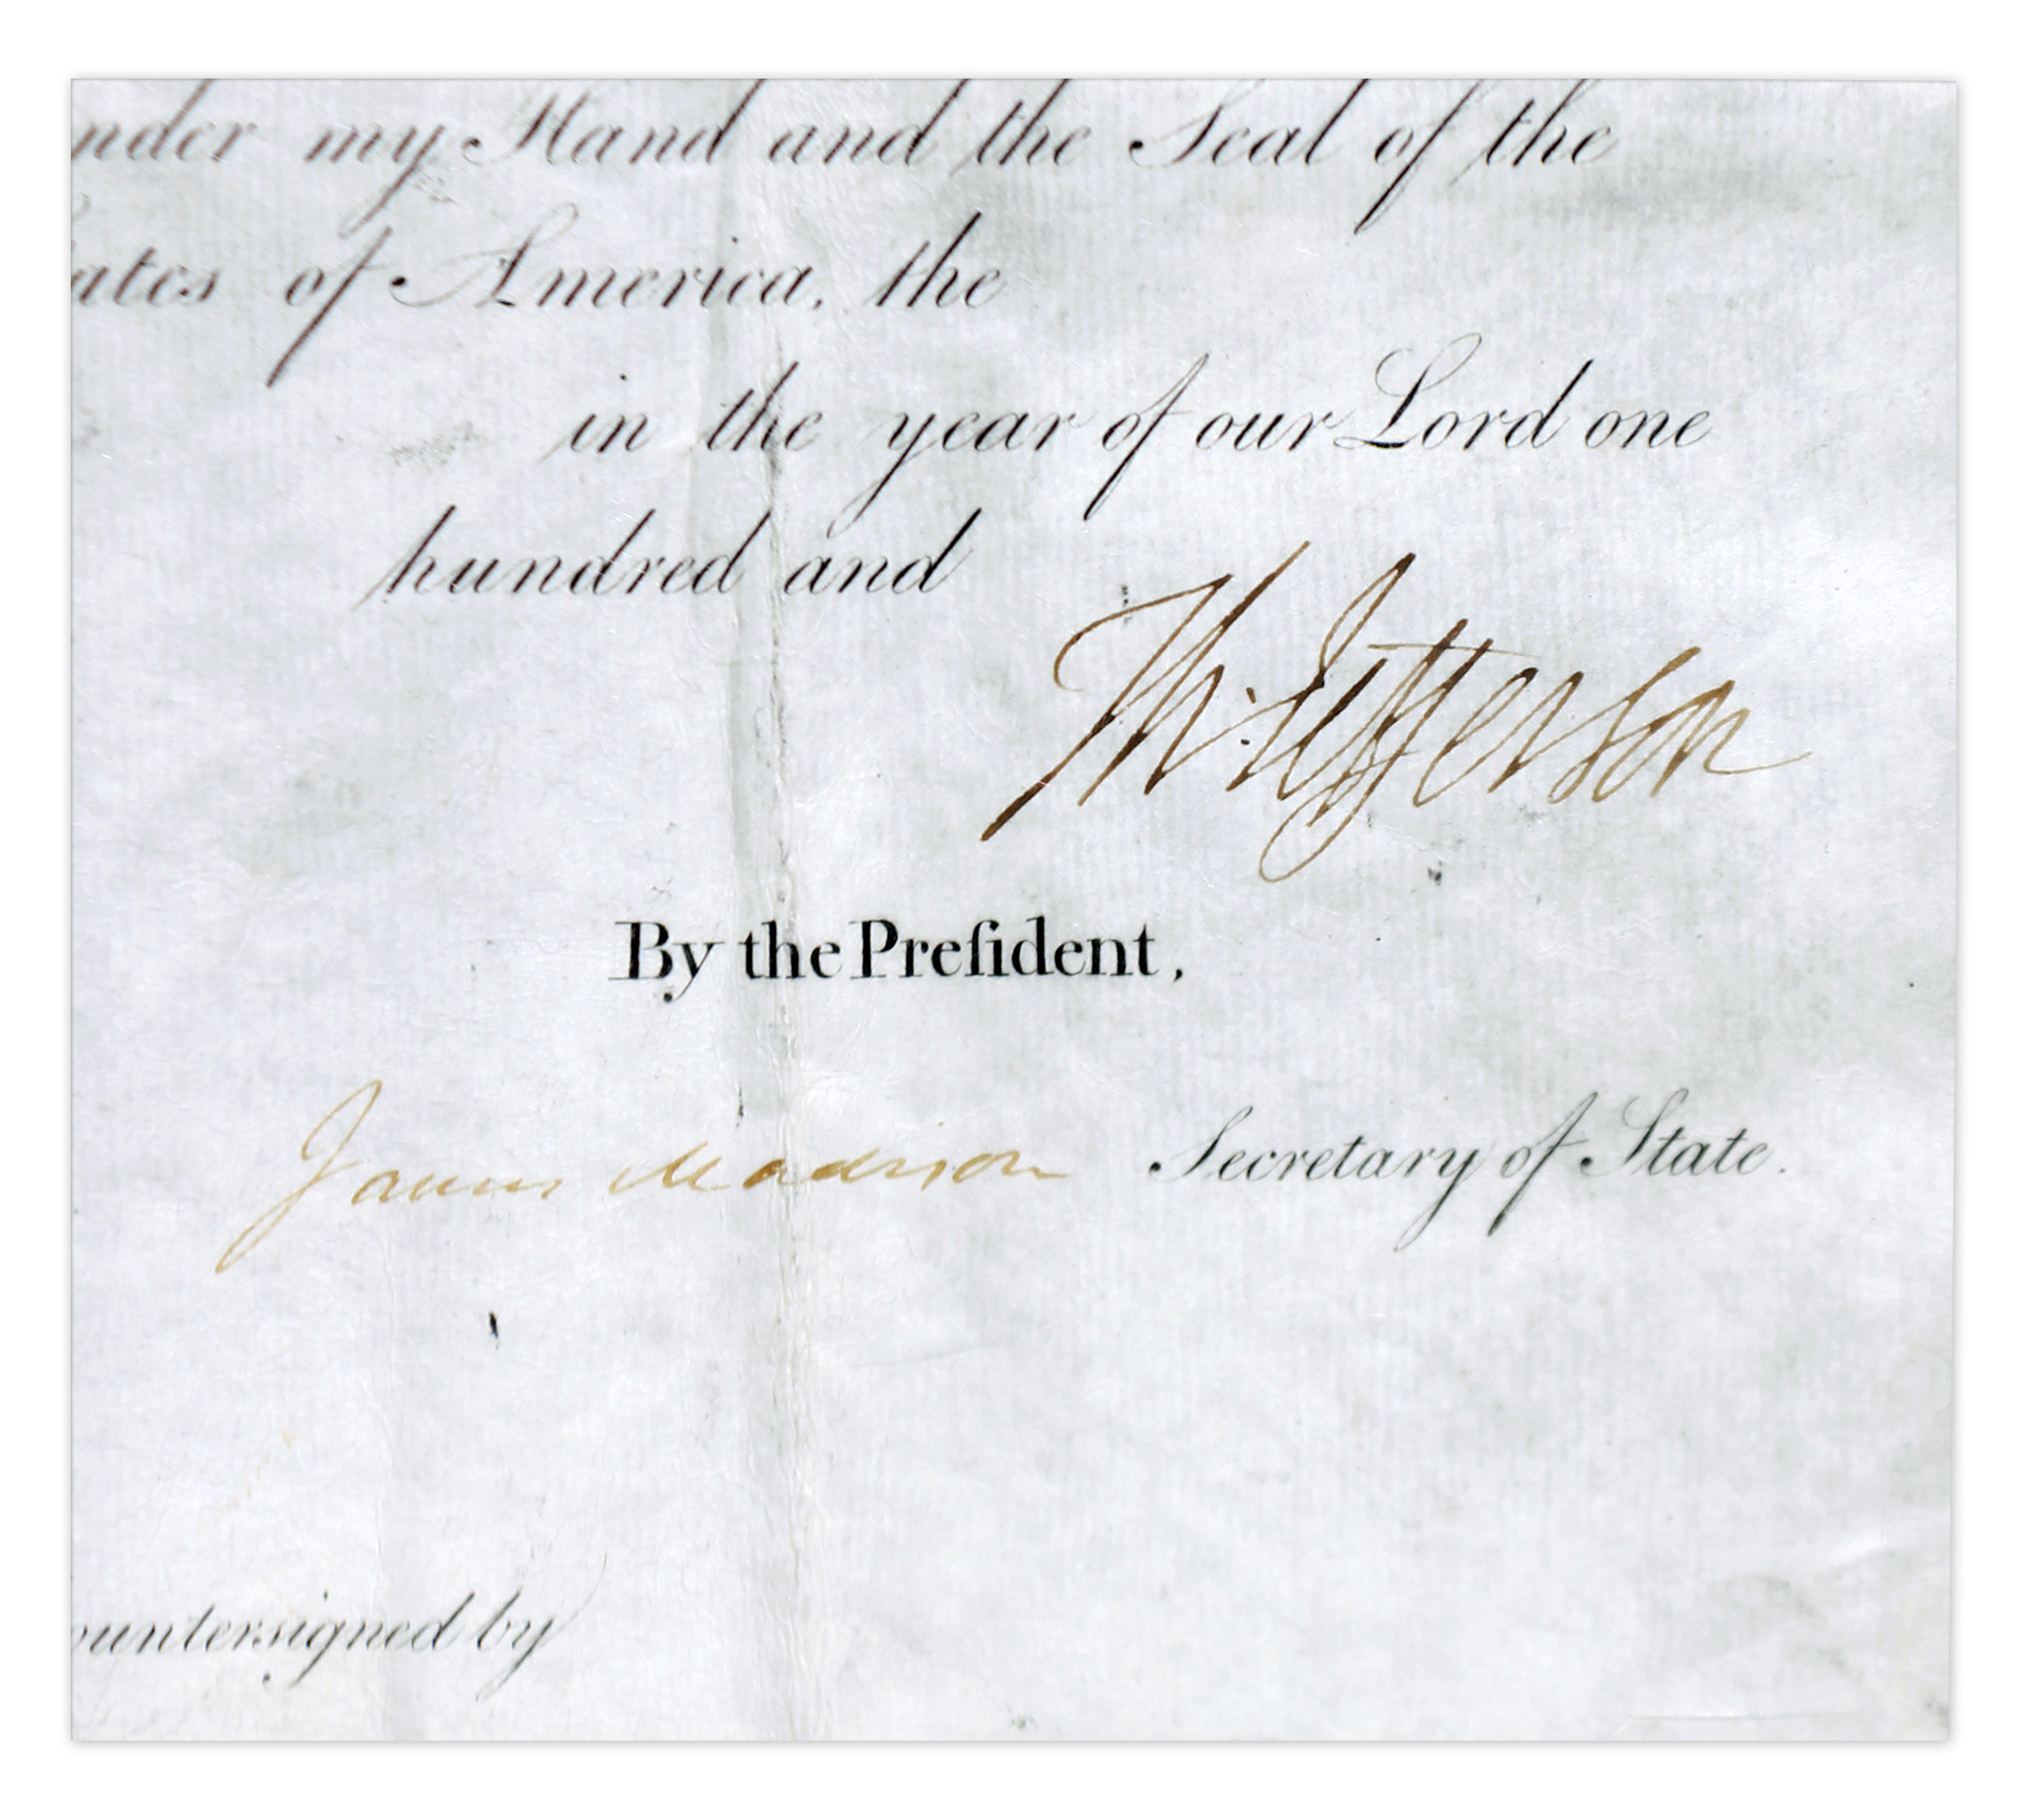 nder my Hand and the Seal of the
ates of America, the
in the year of our Lord one
hundred and
Th: Jefferson
By the Preſident,
James Madison Secretary of State.
ountersigned by